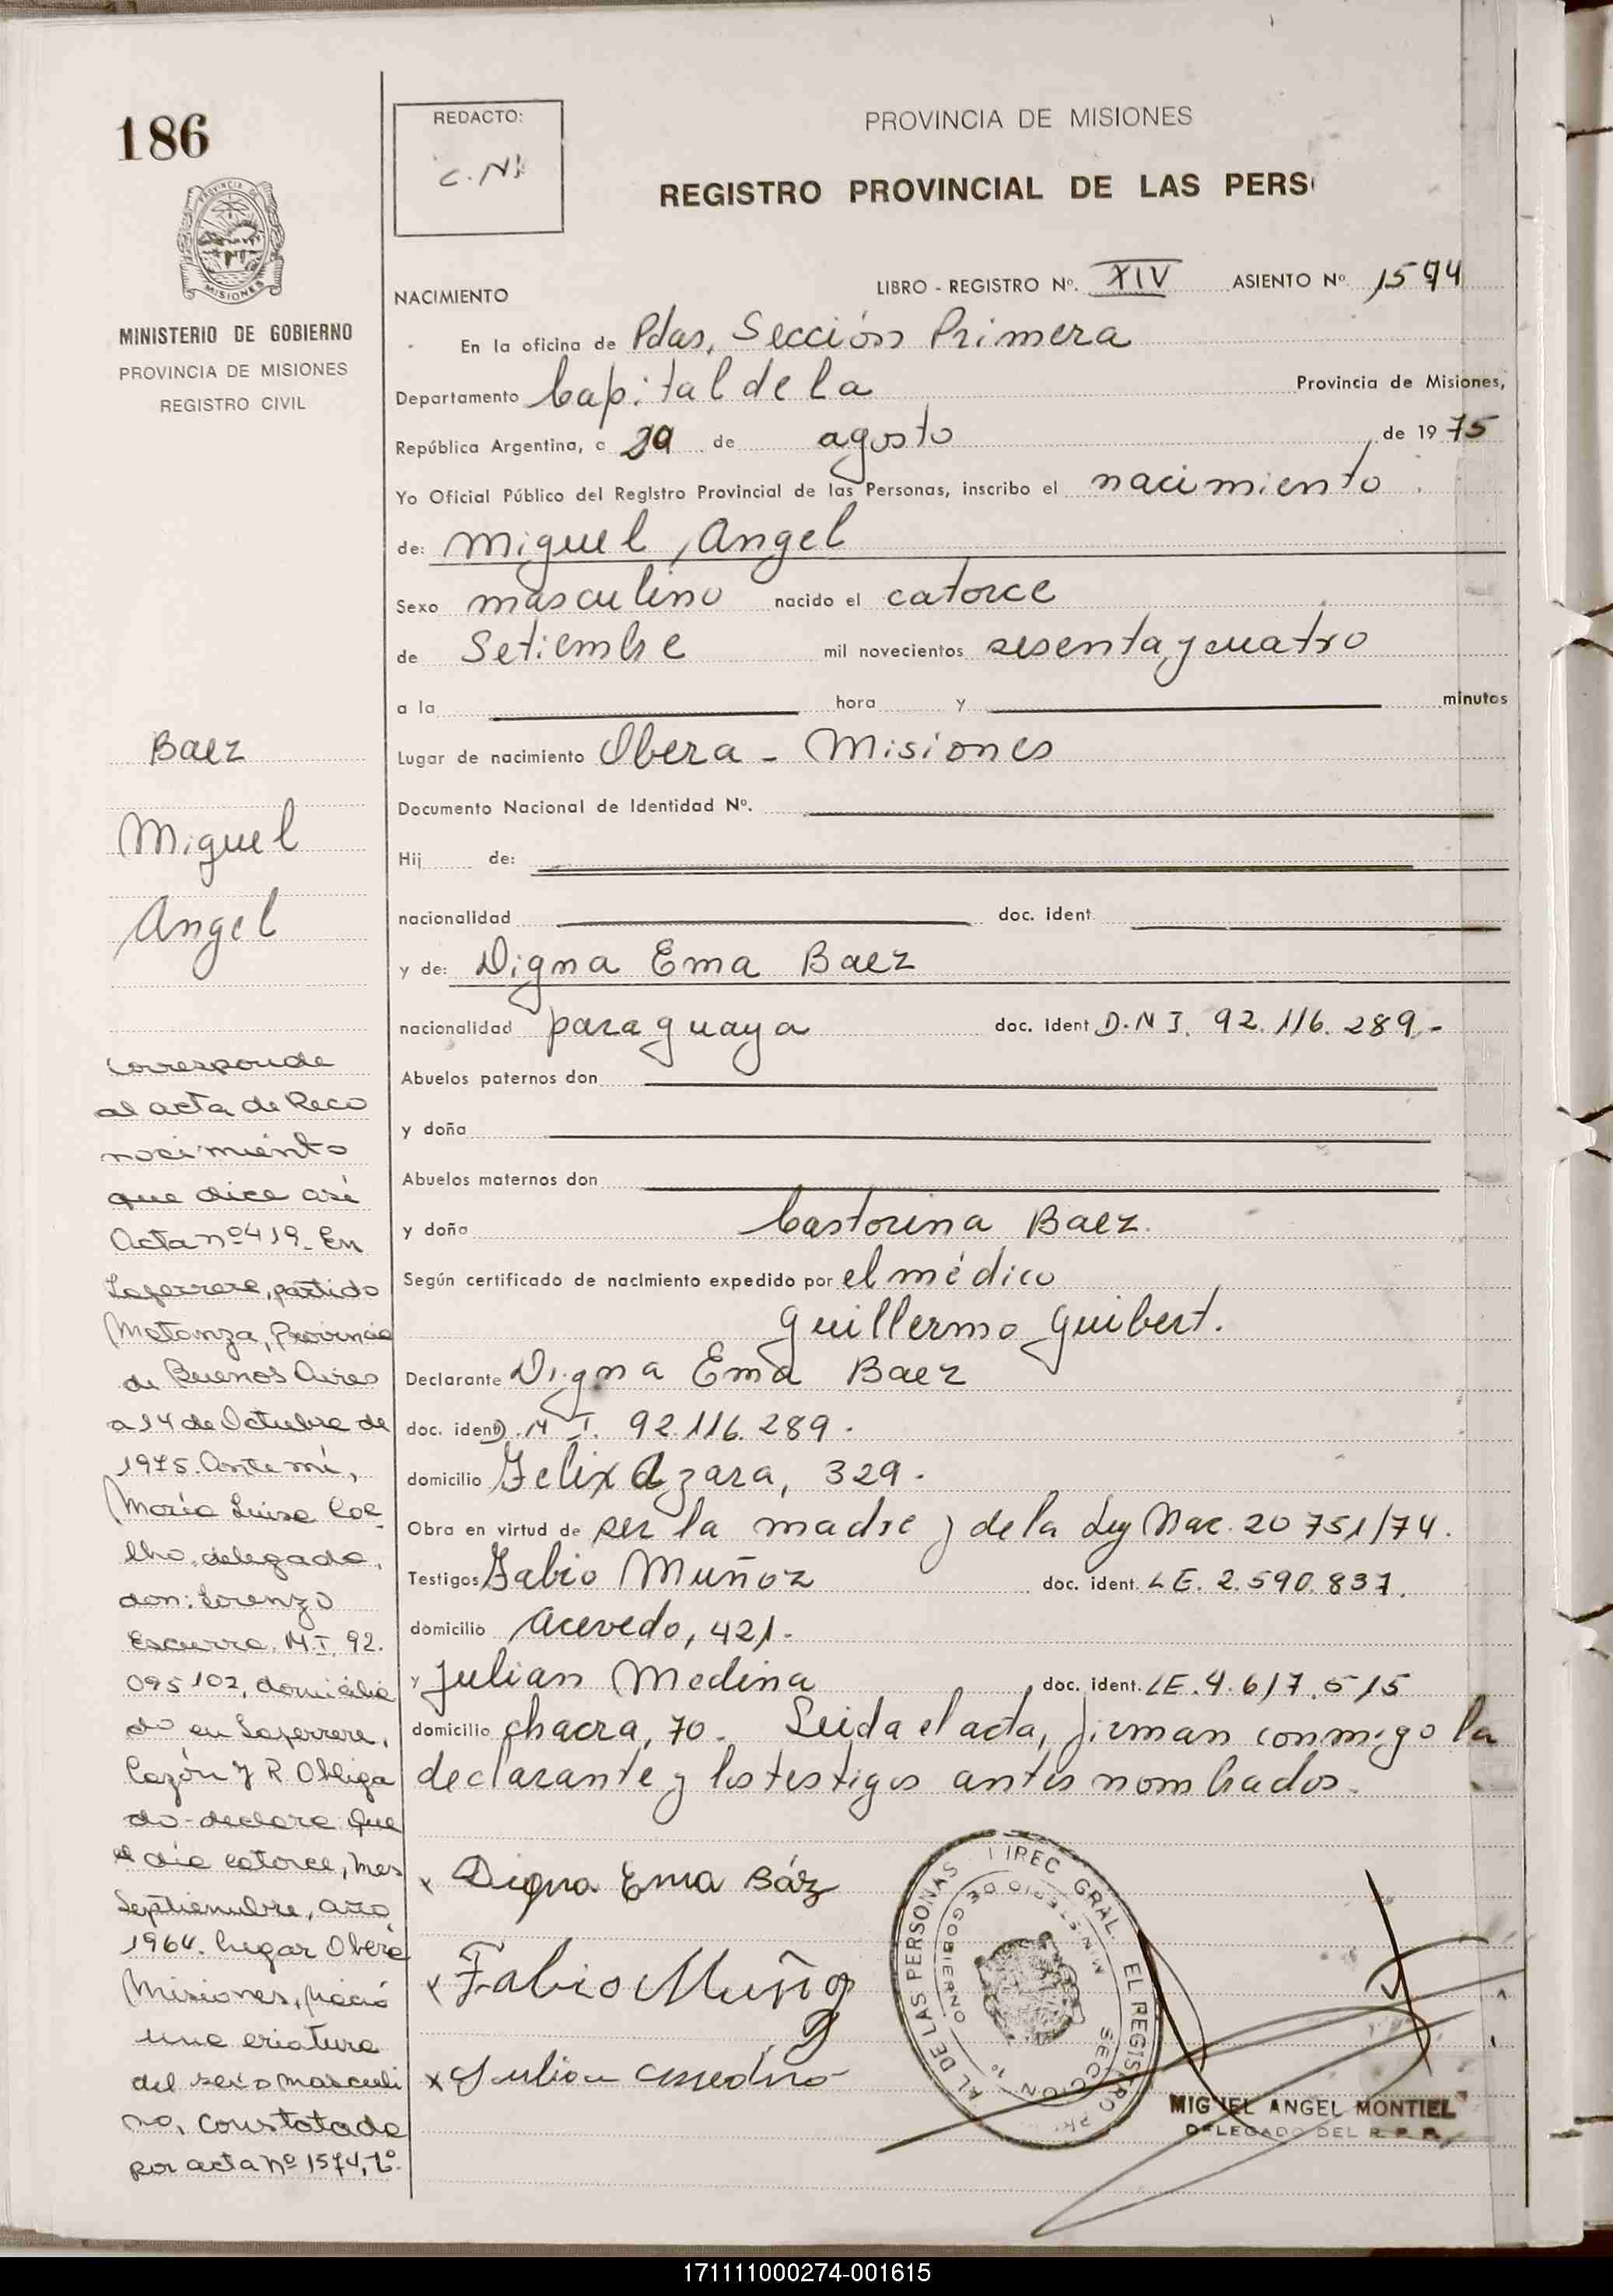 186
REDACTO:
C. N.
PROVINCIA DE MISIONES
REGISTRO PROVINCIAL DE LAS PERS
MINISTERIO DE GOBIERNO
PROVINCIA DE MISIONES
REGISTRO CIVIL
NACIMIENTO
LIBRO - REGISTRO Nº. XIV ASIENTO Nº 1574
En la oficina de Pdas, Sección Primera
Departamento Capital de la Provincia de Misiones,
República Argentina, a 29 de agosto de 1975
Yo Oficial Público del Registro Provincial de las Personas, inscribo el nacimiento
de: Miguel Angel
Sexo masculino nacido el catorce
de Setiembre mil novecientos sesenta y cuatro
a la hora y minutos
Lugar de nacimiento Obera - Misiones
Documento Nacional de Identidad Nº.
Hij de:
nacionalidad doc. ident
y de: Digna Ema Baez
nacionalidad paraguaya doc. ident D.N I. 92.116.289.-
Abuelos paternos don
y doña
Abuelos maternos don
y doña Castorina Baez.
Según certificado de nacimiento expedido por el médico
Guillermo Guibert.
Declarante Digna Ema Baez
doc. ident D.N I. 92.116.289.
domicilio Felix Azara, 329.
Obra en virtud de ser la madre y de la Ley Nac. 20 751/74.
Testigos Fabio Muñoz doc. ident. L E. 2.590.837.
domicilio Acevedo, 421.-
y Julian Medina doc. ident. L E. 4.617.515
domicilio chacra, 70. Leida el acta, firman conmigo la
declarante y los testigos antes nombrados.
x Digna Ema Báz
x Fabio Muñoz
x Julian Medina
DIREC GRAL DEL REGISTRO PR AL DE LAS PERSONAS
MINISTERIO DE GOBIERNO
SECCION 1º
MIGUEL ANGEL MONTIEL
DELEGADO DEL R. P. P.
Baez
Miguel
Angel
Corresponde
al acta de Reco
nocimiento
que dice así
Acta nº 419. En
Laferrere, partido
Matanza, Provincia
de Buenos Aires
a 14 de Octubre de
1975. Ante mí,
María Luisa Coe
lho, delegada,
don: Lorenzo
Escurra. M I. 92.
095 102, domicilia
do en Laferrere,
Cazón y R. Obliga
do - declara que
el día catorce, mes
Septiembre, año
1964. lugar Oberá
Misiones, Nació
una criatura
del sexo masculi
no, constatado
por acta nº 1574, Tº.
171111000274-001615